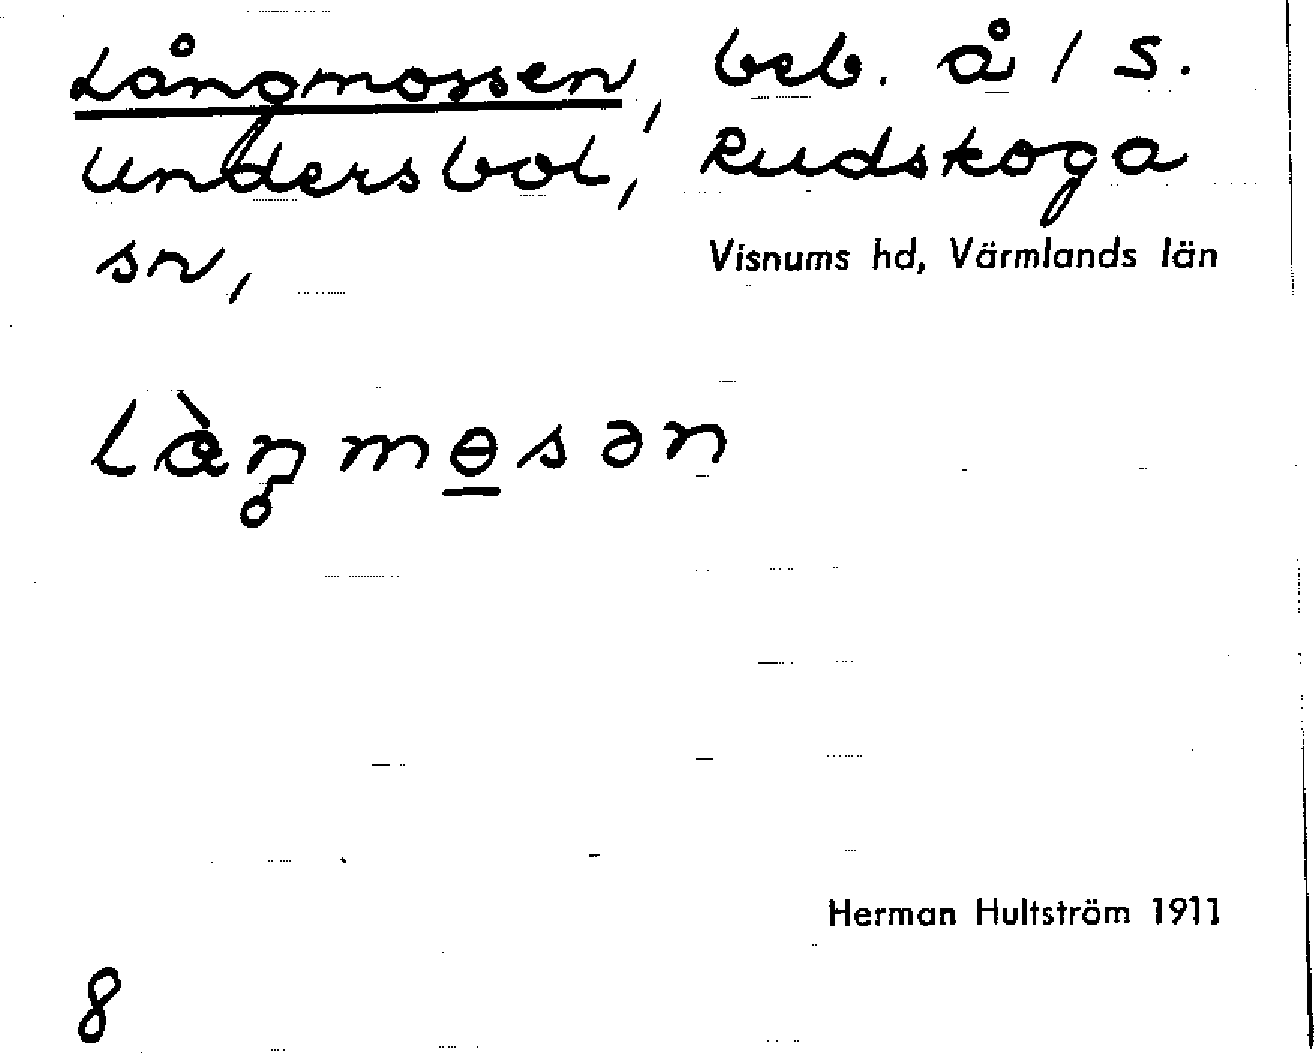 Långmossen, beb. å 1 S.
Undersbol, Rudskoga
sn,
Visnums hd, Värmlands län
làŋmɵsən
Herman Hultström 1911
8